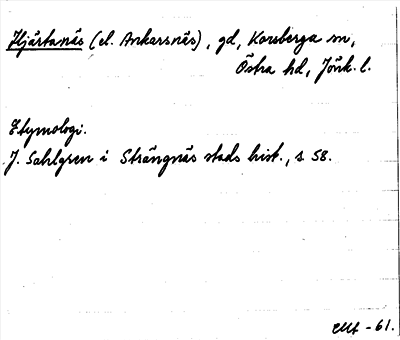 Hjärtanäs (el. Ankarsnäs), gd, Korsberga sn,
Östra hd, Jönk. l.
Etymologi.
J. Sahlgren i Strängnäs stads hist., s 58.
-61.